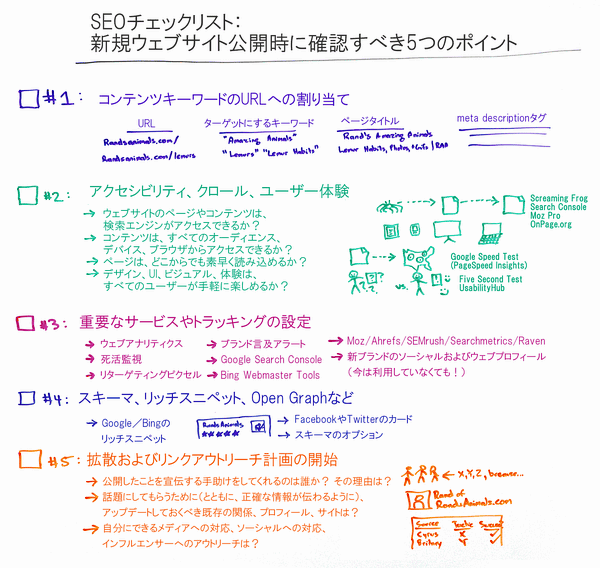 SEOチェックリスト：
新規ウェブサイト公開時に確認すべき5つのポイント
#1: コンテンツキーワードのURLへの割り当て
URL ターゲットにするキーワード ページタイトル meta descriptionタグ
Randsanimals.com/ "Amazing Animals" Rand's Amazing Animals
Randsanimals.com/lemurs "Lemurs" "Lemur Habits" Lemur Habits, Photos, | RAA
#2: アクセシビリティ、クロール、ユーザー体験
→ ウェブサイトのページやコンテンツは、
検索エンジンがアクセスできるか？
→ コンテンツは、すべてのオーディエンス、
デバイス、ブラウザからアクセスできるか？
→ ページは、どこからでも素早く読み込めるか？
→ デザイン、UI、ビジュアル、体験は、
すべてのユーザーが手軽に楽しめるか？
Screaming Frog
Search Console
Moz Pro
OnPage.org
Google Speed Test
(PageSpeed Insights)
vs.
Five Second Test
UsabilityHub
#3: 重要なサービスやトラッキングの設定
→ ウェブアナリティクス → ブランド言及アラート → Moz/Ahrefs/SEMrush/Searchmetrics/Raven
→ 死活監視 → Google Search Console → 新ブランドのソーシャルおよびウェブプロフィール
→ リターゲティングピクセル → Bing Webmaster Tools （今は利用していなくても！）
#4: スキーマ、リッチスニペット、Open Graphなど
→ Google／Bingの
リッチスニペット
Rands Animals
★★★★★
→ FacebookやTwitterのカード
→ スキーマのオプション
#5: 拡散およびリンクアウトリーチ計画の開始
→ 公開したことを宣伝する手助けをしてくれるのは誰か？ その理由は？
→ 話題にしてもらうために（とともに、正確な情報が伝わるように）、
アップデートしておくべき既存の関係、プロフィール、サイトは？
→ 自分にできるメディアへの対応、ソーシャルへの対応、
インフルエンサーへのアウトリーチは？
← X, Y, Z, because...
Rand of
RandsAnimals.com
Source Tactic Succeed
Cyrus X ✓
Britney Y